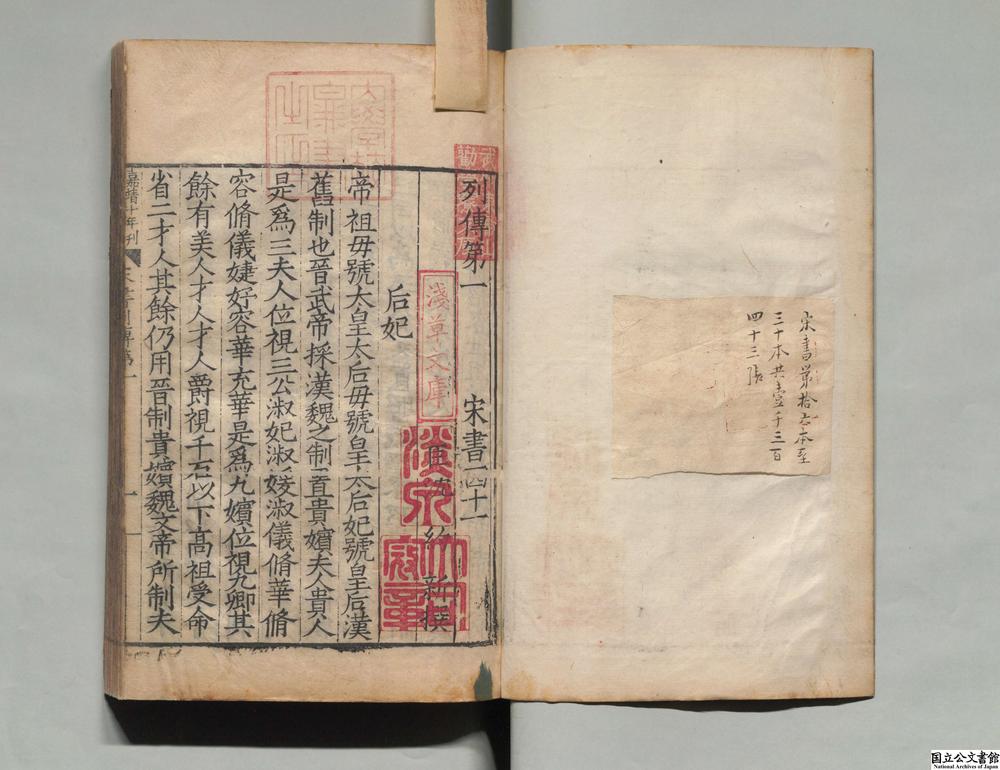 宋書第拾六本至
三十本共壹千三百
四十三張
列傳第一　宋書四十一
臣沈約新撰
后妃
帝祖母號太皇太后母號皇太后妃號皇后漢
舊制也晉武帝採漢魏之制置貴嬪夫人貴人
是爲三夫人位視三公淑妃淑媛淑儀脩華脩
容脩儀婕妤容華充華是爲九嬪位視九卿其
餘有美人才人才人爵視千石以下高祖受命
省二才人其餘仍用晉制貴嬪魏文帝所制夫
嘉靖十年刊
宋書列傳第一
一
淺草文庫
國立公文書館
National Archives of Japan